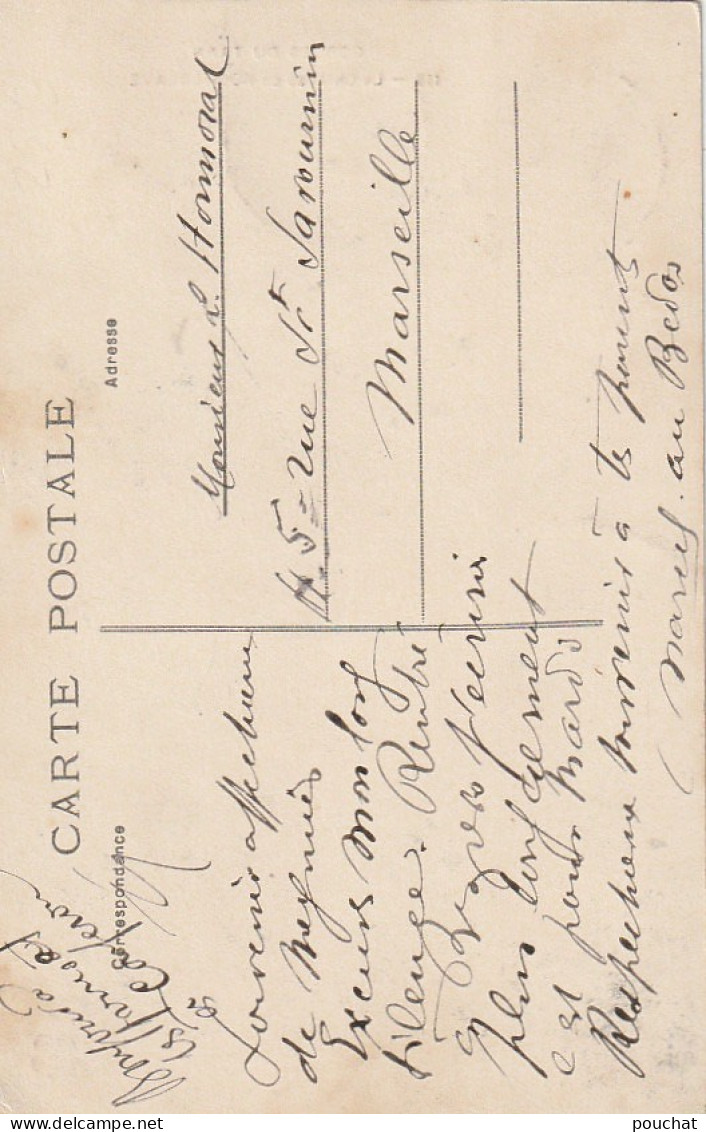 CARTE POSTALE
Correspondance
Adresse
Souvenir affectueux
de Meymès
Excuse mon long
silence. Rentré
Béziers t'écrirai
plus longuement
est pour Mardi
Respectueux souvenirs à tes parents
Marcel au Bedos
Bonjour à
et
Monsieur L. Honnorat
45 - rue St Savournin
Marseille
118 -
pouchat